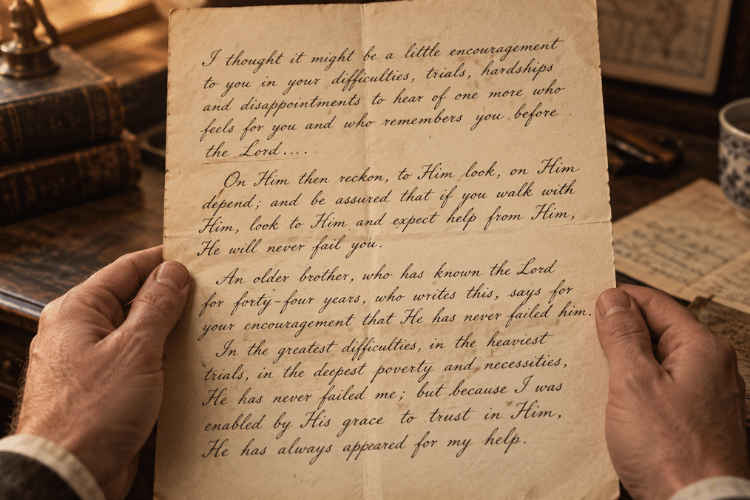 I thought it might be a little encouragement
to you in your difficulties, trials, hardships
and disappointments to hear of one more who
feels for you and who remembers you before
the Lord....
On Him then reckon, to Him look, on Him
depend; and be assured that if you walk with
Him, look to Him and expect help from Him,
He will never fail you.
An older brother, who has known the Lord
for forty-four years, who writes this, says for
your encouragement that He has never failed him.
In the greatest difficulties, in the heaviest
trials, in the deepest poverty and necessities,
He has never failed me; but because I was
enabled by His grace to trust in Him,
He has always appeared for my help.